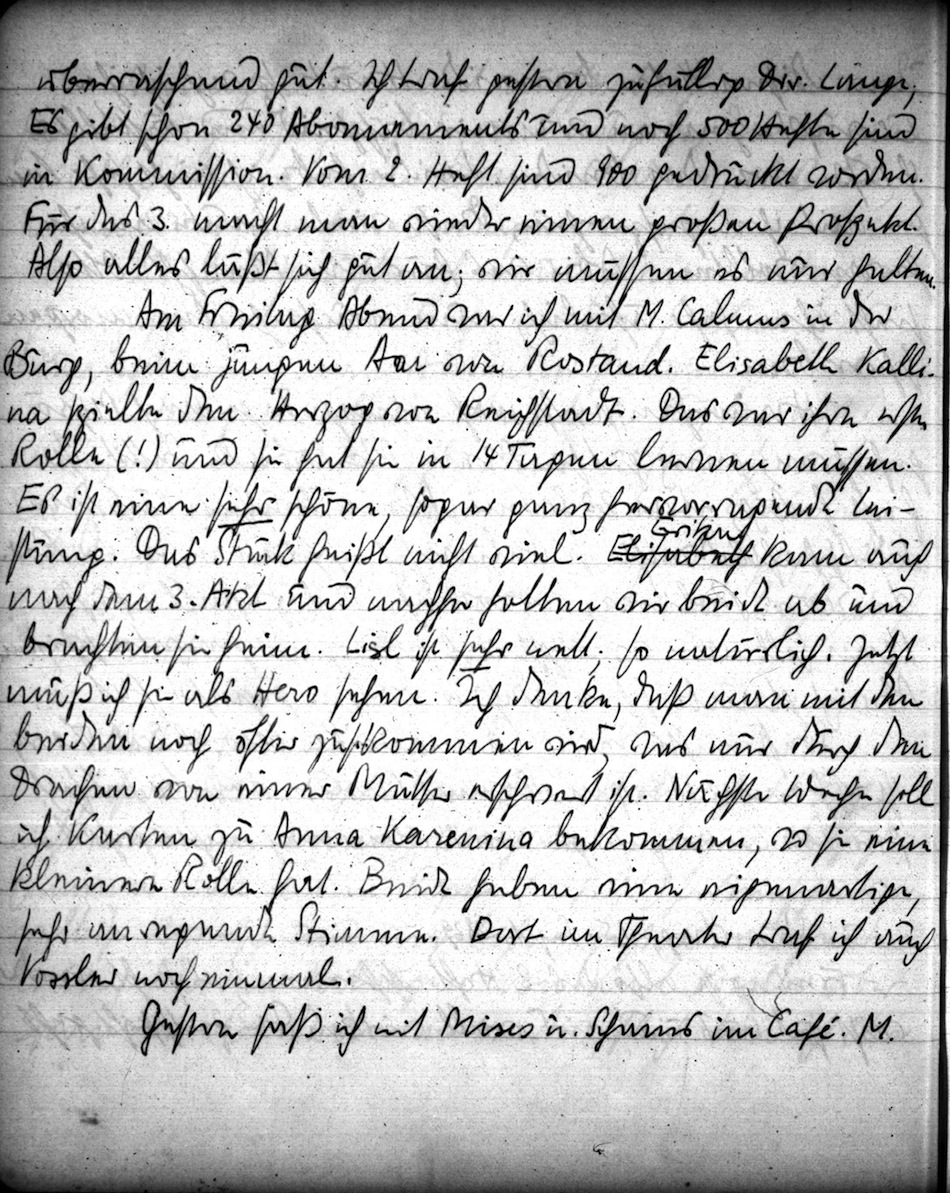 überraschend gut. Ich traf gestern zufällig Dir. Lange;
Es gibt schon 240 Abonnements und noch 500 Hefte sind
in Kommission. Vom 2. Heft sind 900 gedruckt worden.
Für das 3. macht man wieder einen großen Prospekt.
Also alles läßt sich gut an; wir müssen es nur halten.
Am Freitag Abend war ich mit M. Calmus in der
Burg, beim jungen Aar von Rostand. Elisabeth Kalli-
na spielte den Herzog von Reichstadt. Das war ihre erste
Rolle (!) und sie hat sie in 14 Tagen lernen müssen.
Es ist eine sehr schöne, sogar ganz hervorragende Lei-
stung. Das Stück heißt nicht viel. Elisabeth kam auch
nach dem 3. Akt und nachher holten wir beide ab und
brachten sie heim. Lisl ist sehr nett; so natürlich. Jetzt
muß ich sie als Hero sehen. Ich denke, daß man mit den
beiden noch öfter zuskommen wird, was nur durch den
Drachen von einer Mutter erschwert ist. Nächste Woche soll
ich Karten zu Anna Karenina bekommen, wo sie eine
kleinere Rolle hat. Beide haben eine eigenartige,
sehr anregende Stimme. Dort im Theater traf ich auch
Vossler noch einmal.
Gestern saß ich mit Mises u. Schams im Café. M.